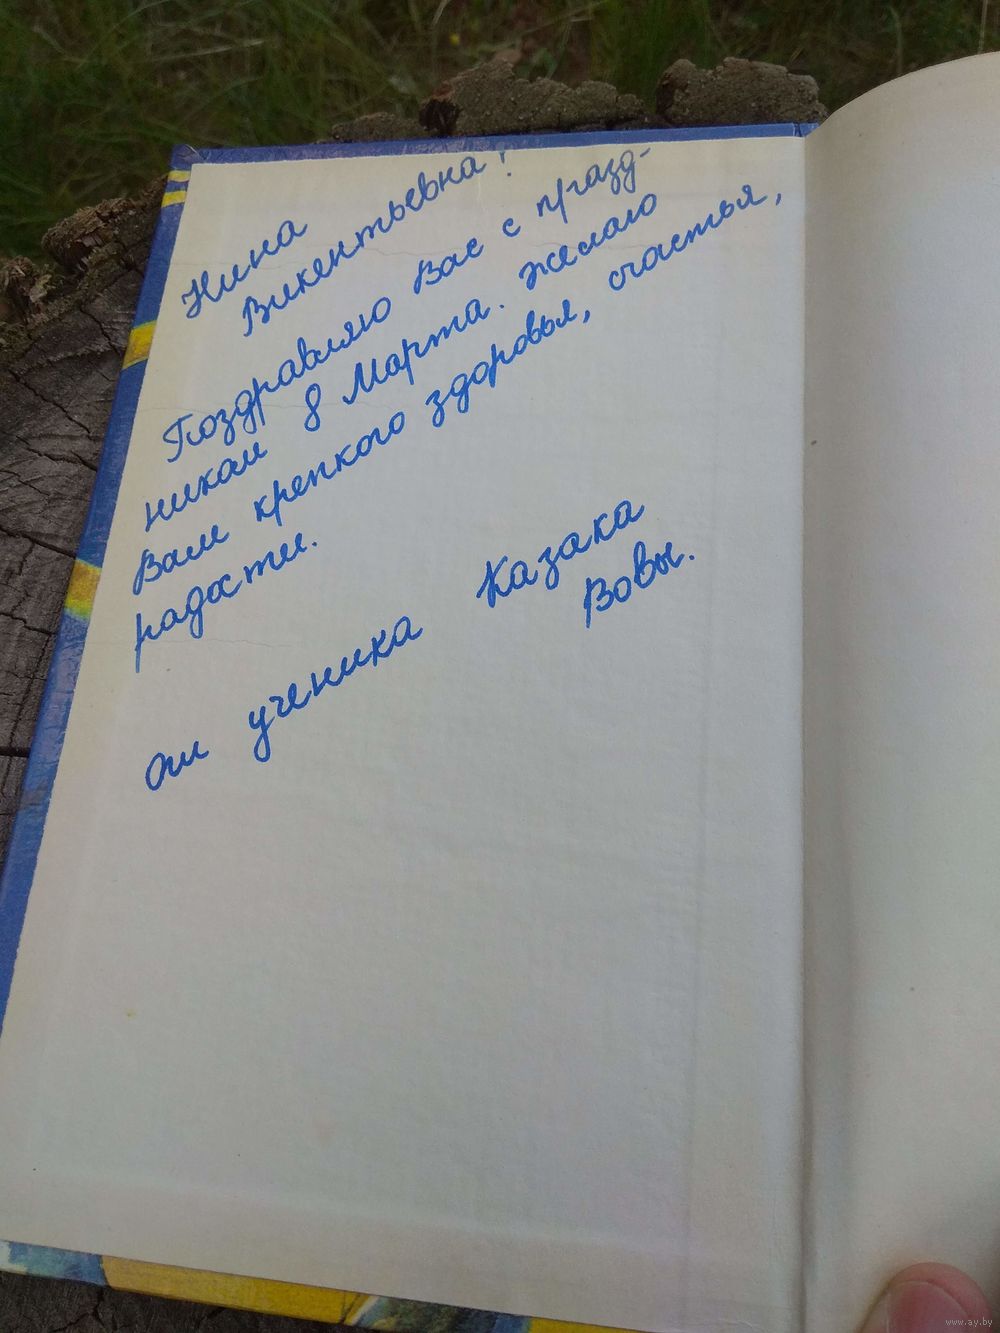 Нина
Викентьевна!
Поздравляю Вас с празд-
ником 8 Марта. Желаю
Вам крепкого здоровья, счастья,
радости.
от ученика Казака
Вовы.
www.ay.by